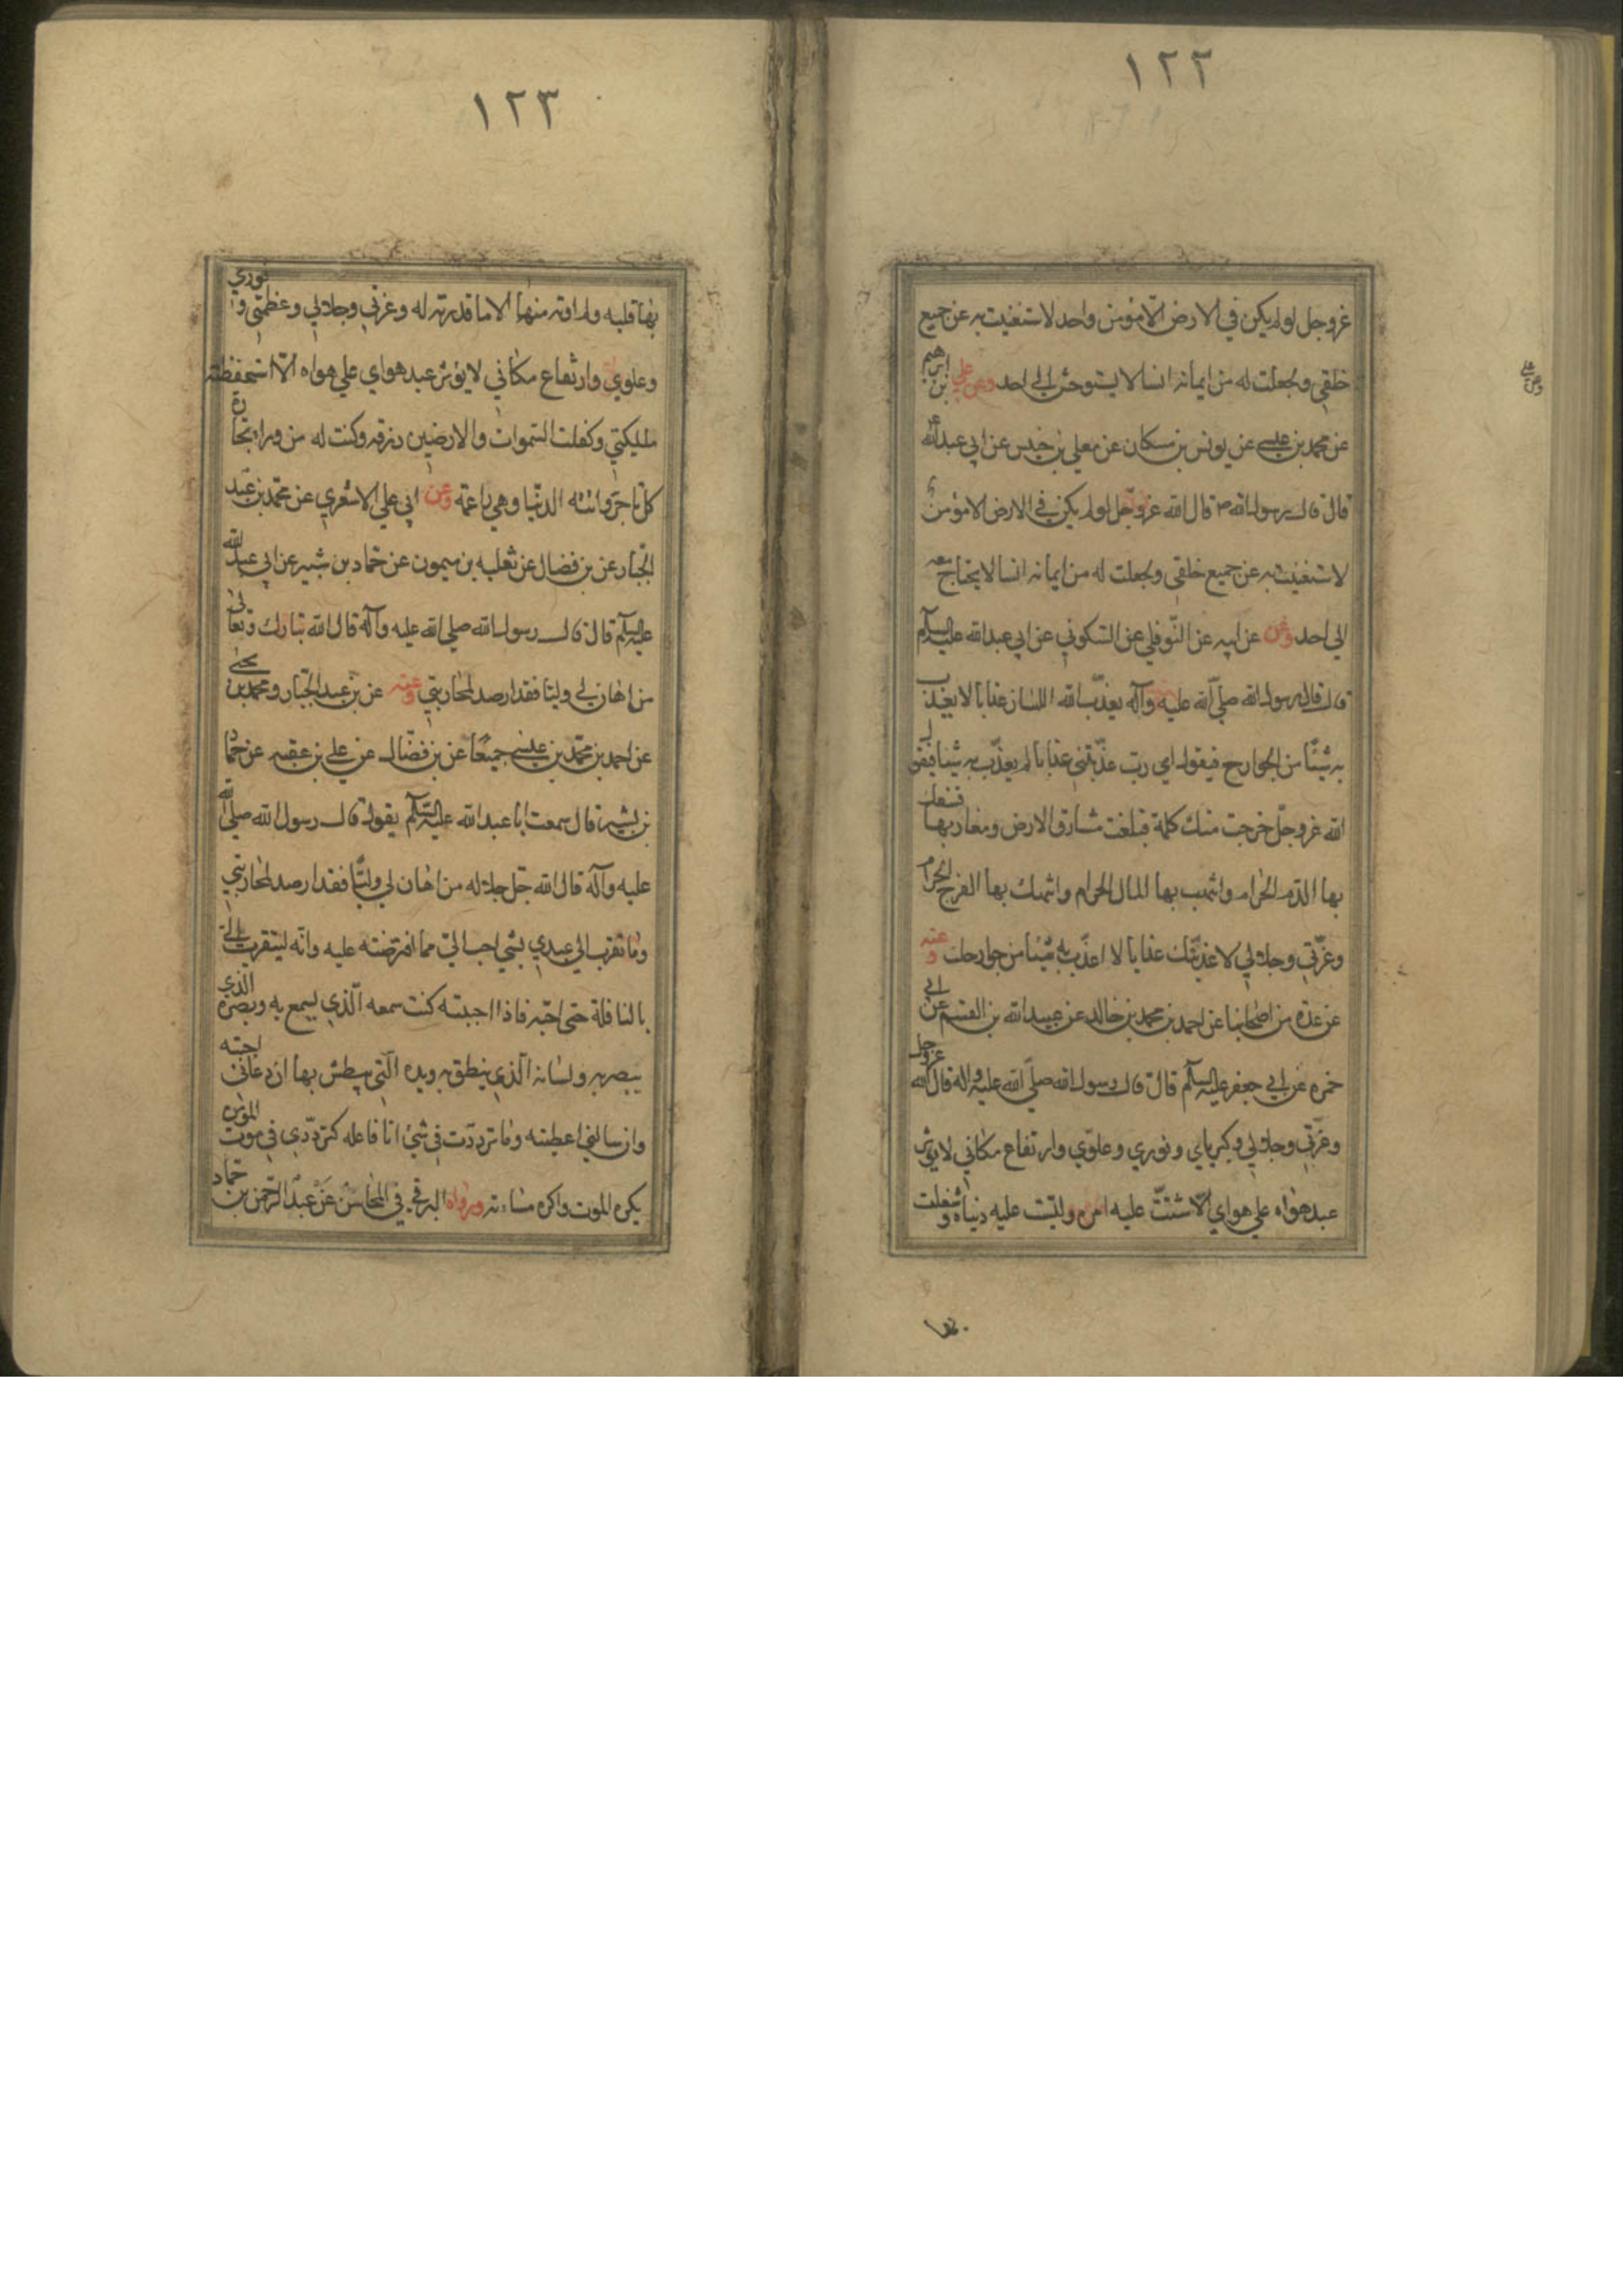 ١٢٢
عزوجل لو لم يكن في الارض الّا مؤمن واحد لاستغنيت به عن جميع
خلقي ولجعلت له من ايمانه انسا لا يستوحش الى احد وعن علي بن ابرهيم
عن محمد بن عيسى عن يونس بن مسكان عن معلي بن خنيس عن ابي عبدالله ع
قال قال رسول الله ص قال الله عزوجل لو لم يكن في الارض الا مؤمن
لاستغنيت به عن جميع خلقي ولجعلت له من ايمانه انسا لا يحتاج معه
الي احد وعن عن ابيه عن النّوفلي عن السّكوني عن ابي عبدالله عليه السلام
قال قال رسول الله صلّي الله عليه وآله يعذّب الله اللسان عذابا لا يعذب
به شيئًا من الجوارح فيقول اي ربّ عذّبتني عذابا لم يعذّب به شيئا فيقول
الله عزوجلّ خرجت منك كلمة فبلغت مشارق الارض ومغاربها فسفك
بها الدّم الحرام وانتهب بها المال الحرام وانتهك بها الفرج الحرام
وعزّتي وجلالي لاعذّبنّك عذابا لا اعذّب به شيئا من جوارحك وعنه
عن عدّة من اصحابنا عن احمد بن محمد بن خالد عن عبيدالله بن القسم عن ابي
حمزه عن ابي جعفر عليه السلام قال قال رسول الله صلّي الله عليه واله قال الله عزوجل
وعزّتي وجلالي وكبرياي ونوري وعلوّي وارتفاع مكاني لا يؤثر
عبد هواه علي هواي الّا شتتّ عليه امره ولبّست عليه دنياه وشغلت
وعن علي
١٢٣
بها قلبه ولم اوته منها الا ما قدرته له وعزتي وجلالي وعظمتي ونوري
وعلوي وارتفاع مكاني لا يؤثر عبد هواي علي هواه الّا استحفظته
ملايكتي وكفلت السّموات والارضين رزقه وكنت له من وراء تجارة
كل تاجر واتته الدّنيا وهي راغمة وعن ابي علي الاشعري عن محمّد بن عبد
الجبّار عن بن فضال عن ثعلبه بن ميمون عن حمّاد بن بشير عن ابي عبدالله
عليه السلام قال قال رسول الله صلي الله عليه وآله قال الله تبارك وتعالى
من اهان لي وليا فقد ارصد لمحاربتي وعنه عن بن عبد الجبّار ومحمد بن يحيى
عن احمد بن محمّد بن عيسى جميعًا عن بن فضّال عن علي بن عقبه عن حمّاد
بن بشير قال سمعت ابا عبدالله عليه السّلام يقول قال رسول الله صلّي الله
عليه وآله قال الله جلّ جلاله من اهان لي وليًّا فقد ارصد لمحاربتي
وما تقرب الي عبدي بشي احب اليّ مما افترضته عليه وانّه ليتقرب اليّ
بالنافلة حتى احبّه فاذا احببته كنت سمعه الّذي يسمع به وبصره الذي
يبصر به ولسانه الّذي ينطق به ويده الّتي يبطش بها ان دعاني اجبته
وان سالني اعطيته وما تردّدت في شئ انا فاعله كتردّدي في موت المؤمن
يكره الموت واكره مساءته ورواه البرقي في المحاسن عن عبد الرّحمن بن حمّاد